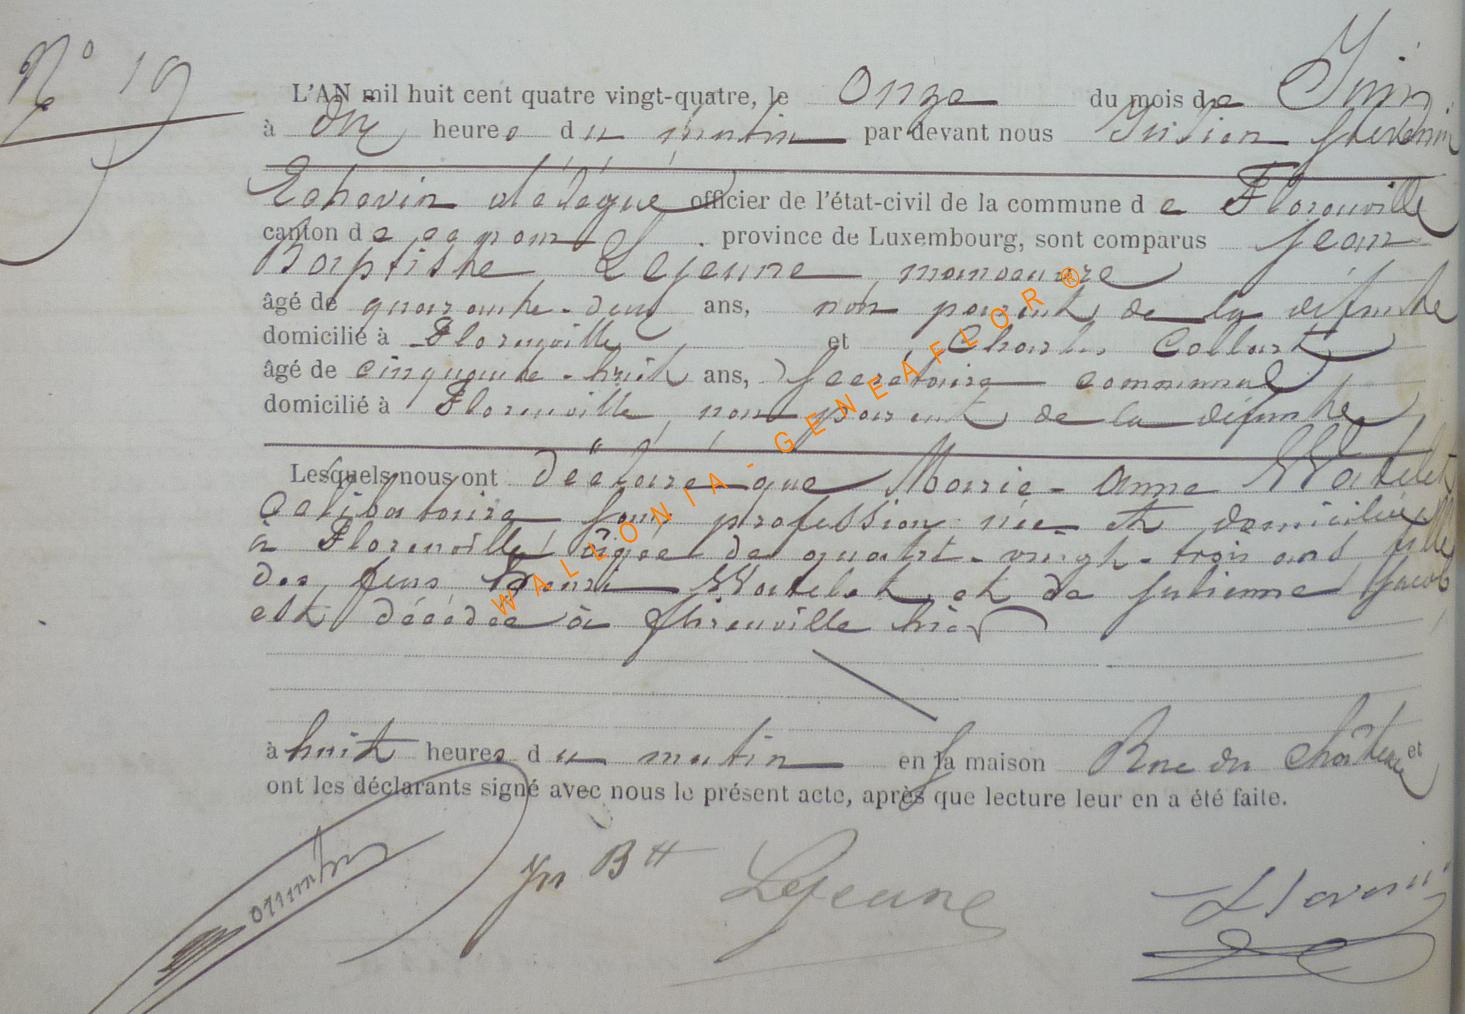 N° 19
L'AN mil huit cent quatre vingt-quatre, le Onze du mois de Juin
à dix heures du matin par devant nous Julien
Echevin délégué officier de l'état-civil de la commune de Florenville
canton de province de Luxembourg, sont comparus Jean
Baptiste Lejeune manoeuvre
âgé de quarante-deux ans, non parent de la défunte
domicilié à Florenville et Charles Collart
âgé de cinquante-huit ans, Secrétaire communal
domicilié à Florenville, non parent de la défunte
Lesquels nous ont déclaré que Marie-Anne Watelet
Célibataire sans profession née et domiciliée
à Florenville âgée de quatre-vingt-trois ans fille
des feus Watelet et de Julienne Jacob
est décédée à Florenville hier
à huit heures du matin en sa maison Rue du Château et
ont les déclarants signé avec nous le présent acte, après que lecture leur en a été faite.
Jn Btt Lejeune
WALLONIA-GENEAFLOR®